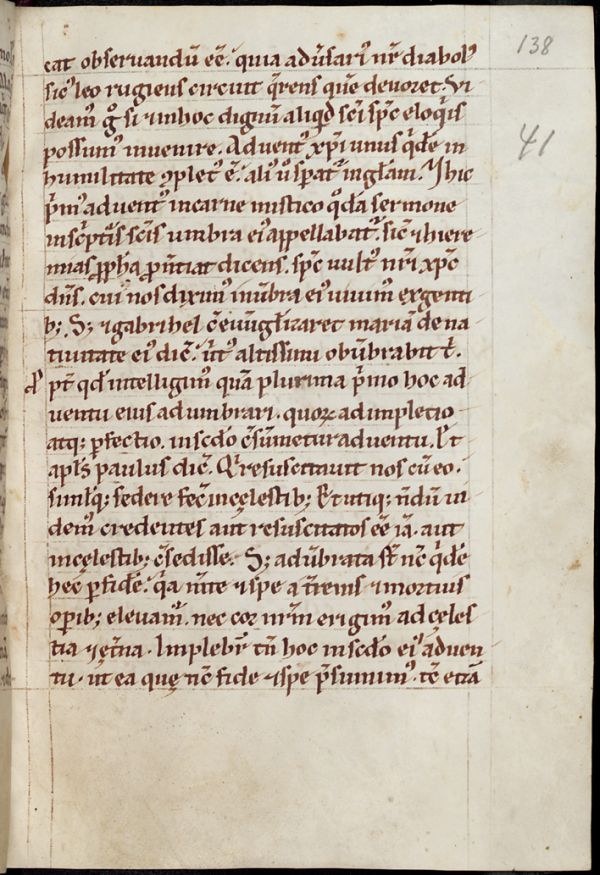 138
41
cat observandū eē. quia aduˀsariꝰ nr̄ diabolꝰ
sic̄ leo rugiens circuit q̄rens quē devoret. Vi
deamꝰ gͦ si ⁊ in hoc dignū aliqͥd sc̄i sp̄c eloqͥis
possumꝰ invenire. Adventꝰ xp̄i unus qͥdē in
humilitate ꝯpletꝰ ē. aliꝰ ūo sperat᷑ in gl̄am. Et hic
p̄mꝰ adventꝰ in carne mistico qͦdā sermone
in sc̄ptis sc̄is umbra eiꝰ appellabat᷑. sic̄ ⁊ hiere
mias ꝓph̄a ꝓnūtiat dicens. sp̄c vultꝰ nr̄i xp̄c
dn̄s. cui nos diximꝰ in ūbra eiꝰ vivimꝰ ex genti
bꝫ. Sꝫ ⁊ gabrihel c̄ euuˀngl̄izaret mariā de na
tivitate eiꝰ dic̄. v̄tꝰ altissimi obūbrabit t̄.
Ꝓ
pt̄ qd̄ intelligimꝰ quā plurima p̄mo hoc ad
ventu eius adumbrari. quoꝝ adimpletio
atqꝫ ꝑfectio. in scd̄o c̄sūmetur adventu. Et
apl̄s paulus dic̄. Q̄ resuscitavit nos cū eo.
simlˀqꝫ sedere fec̄ in cęlestibꝫ. Et utiqꝫ n̄dū vi
demꝰ credentes aut resuscitatos eē iā. aut
in cęlestibꝫ c̄sedisse. Sꝫ adūbrata st̄ nc̄ qͥdē
hęc ꝑ fidē. qͥa m̄te ⁊ spe a t̄renis ⁊ mortuis
oꝑibꝫ elevam᷑. nec cor nr̄m erigimꝰ ad cęles
tia ⁊ et̄na. Implebr̄ tn̄ hoc in scd̄o eiꝰ adven
tu. ut ea quę nc̄ fide ⁊ spe p̄sumimꝰ. tc̄ etiā